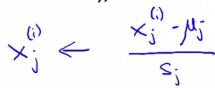 x_j^{(i)} ← \frac{x_j^{(i)} - μ_j}{s_j}